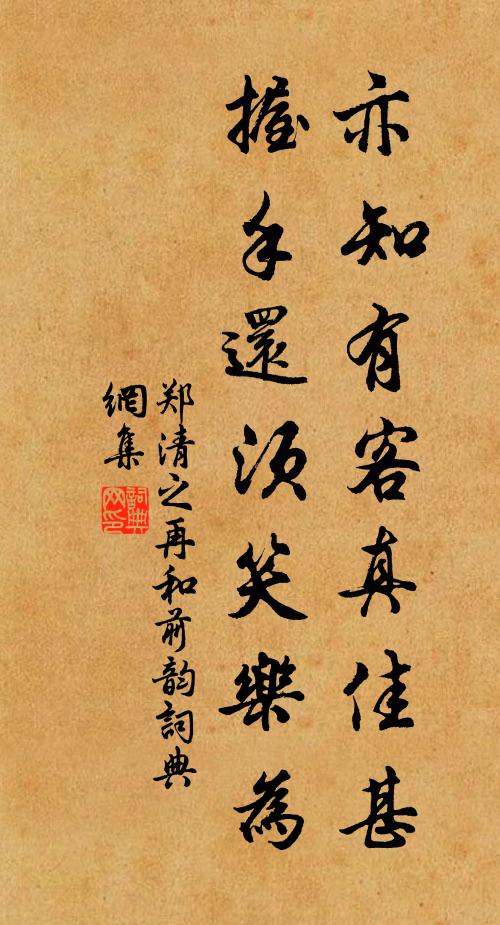 亦知有客真佳甚
握手還須笑樂為
郑清之再和前韵詞典
網集
詞典
网印